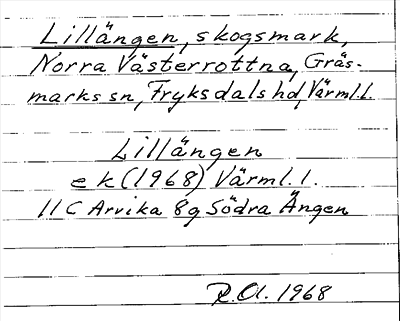 Lillängen, skogsmark,
Norra Västerrottna, Gräs-
marks sn, Fryksdals hd, Värml. l.
Lillängen
e k (1968) Värml. l.
11 C Arvika 8g Södra Ängen
R.Ol. 1968